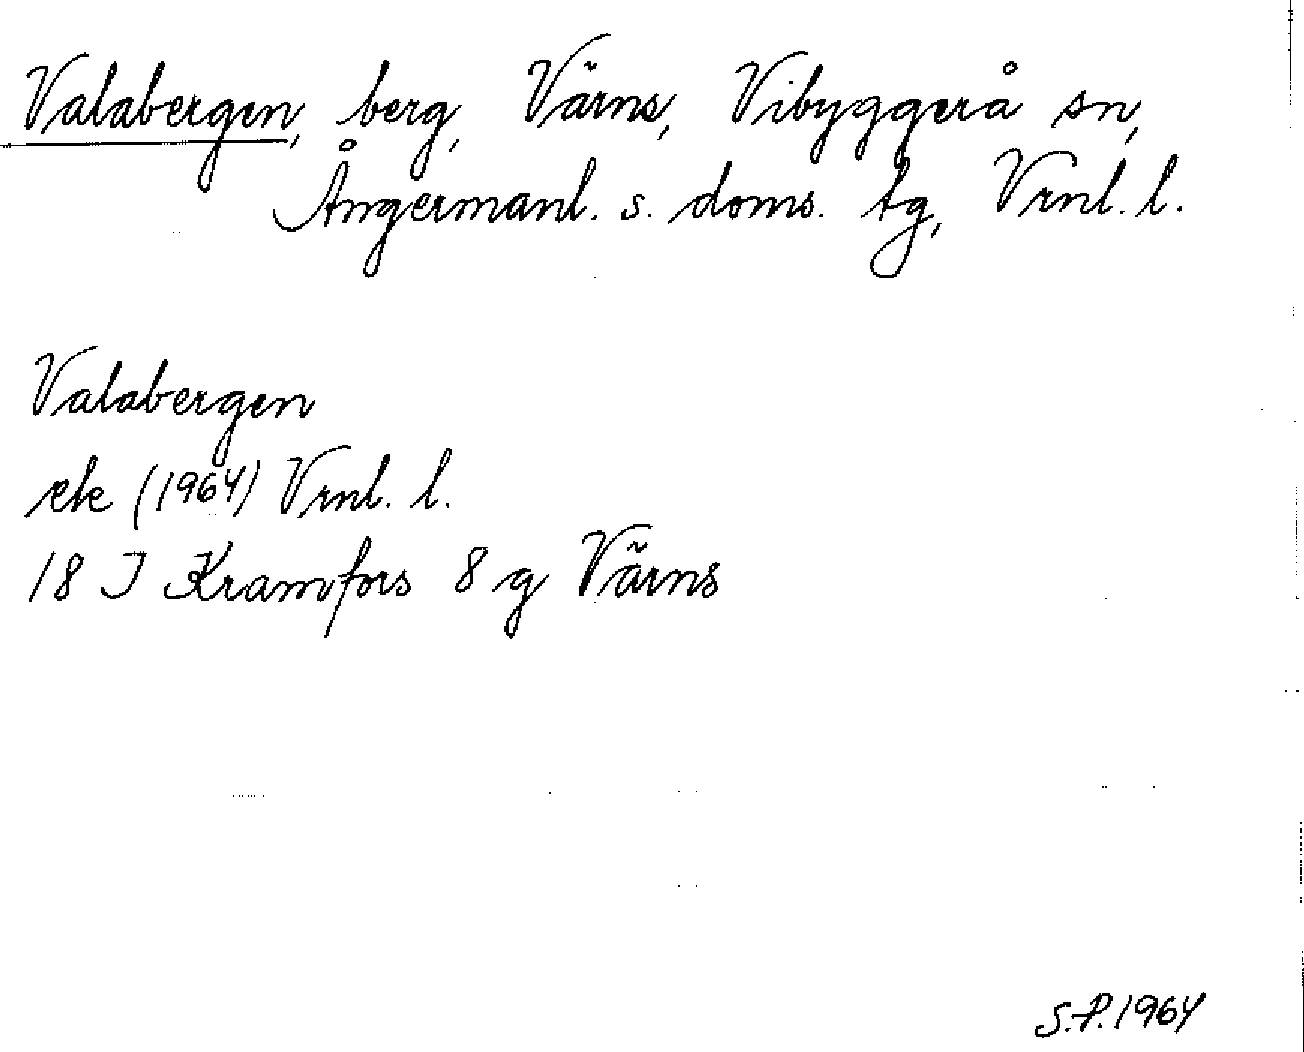 Valabergen, berg, Värns, Vibyggerå sn,
Ångermanl. s. doms. tg, Vrnl. l.
Valabergen
ek (1964) Vrnl. l.
18 I Kramfors 8 g Värns
S.P. 1964